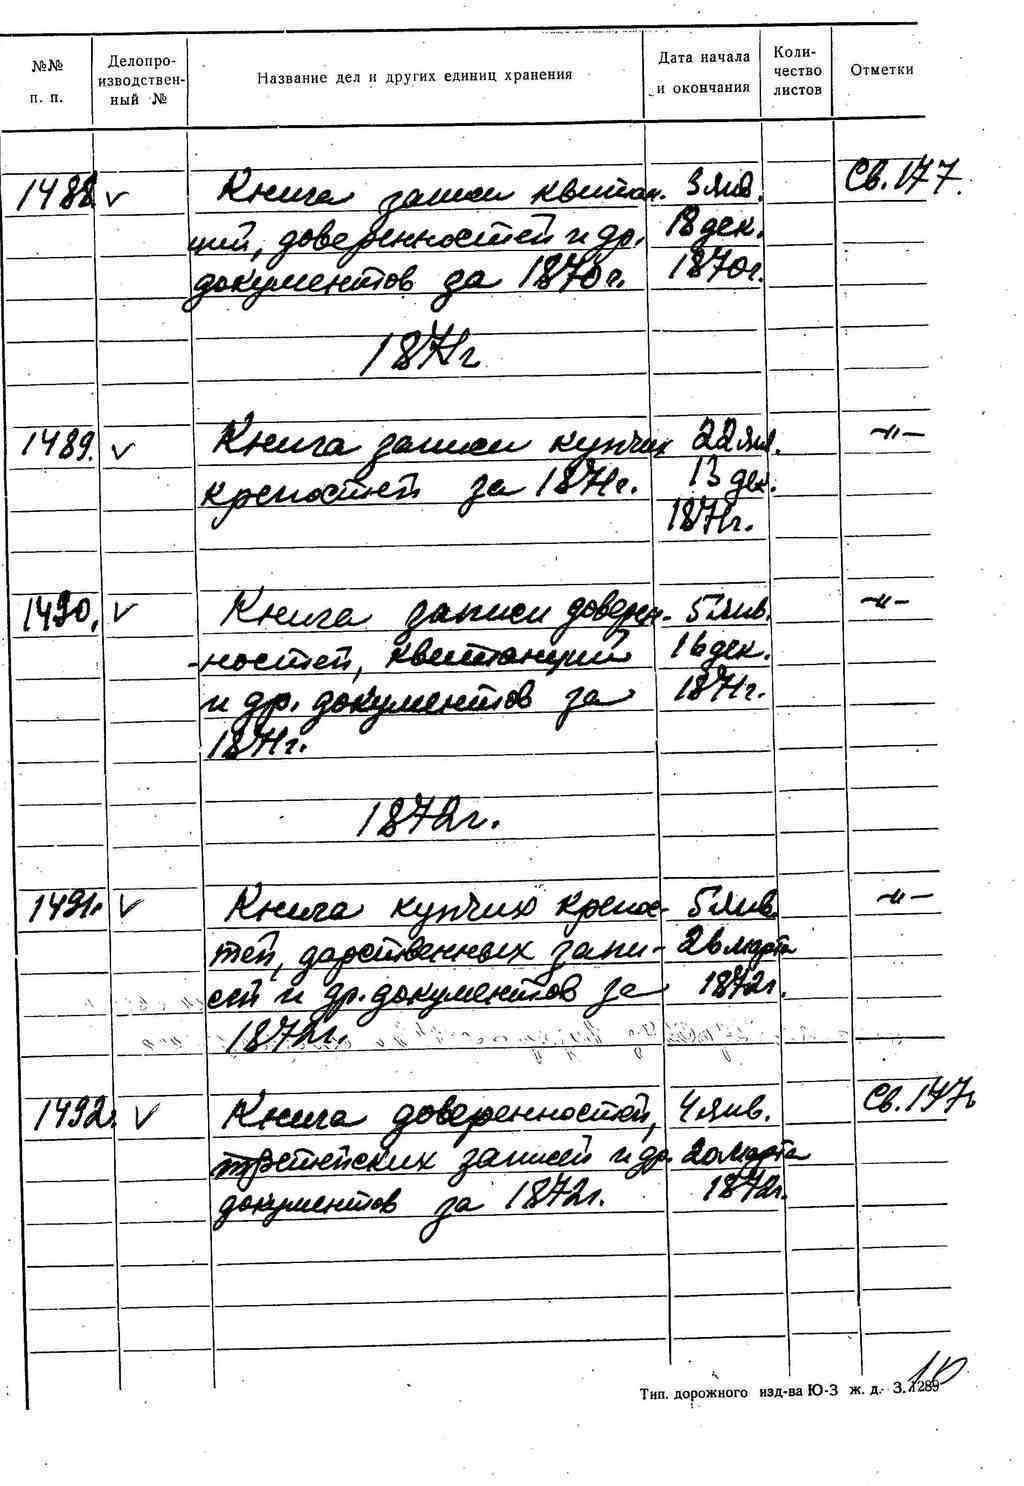 №№ п. п. Делопроизводственный № Название дел и других единиц хранения Дата начала и окончания Количество листов Отметки
1488. v Книга записи квитан- 3 янв. Св. 177.
ций, доверенностей и др. 18 дек.
документов за 1870 г. 1870 г.
1871 г
1489. v Книга записи купчих 22 янв. -"-
крепостей за 1871 г. 13 дек.
1871 г.
1490. v Книга записи доверен- 5 янв. -"-
-ностей, квитанций 16 дек.
и др. документов за 1871 г.
1871 г.
1872 г.
1491. v Книга купчих крепос- 5 янв. -"-
тей, дарственных запи- 26 марта
сей и др. документов за 1872 г.
1872 г.
1492. v Книга доверенностей, 4 янв. Св. 177
третейских записей и др. 20 марта
документов за 1872 г. 1872 г.
Тип. дорожного изд-ва Ю-З ж. д. З. 1289